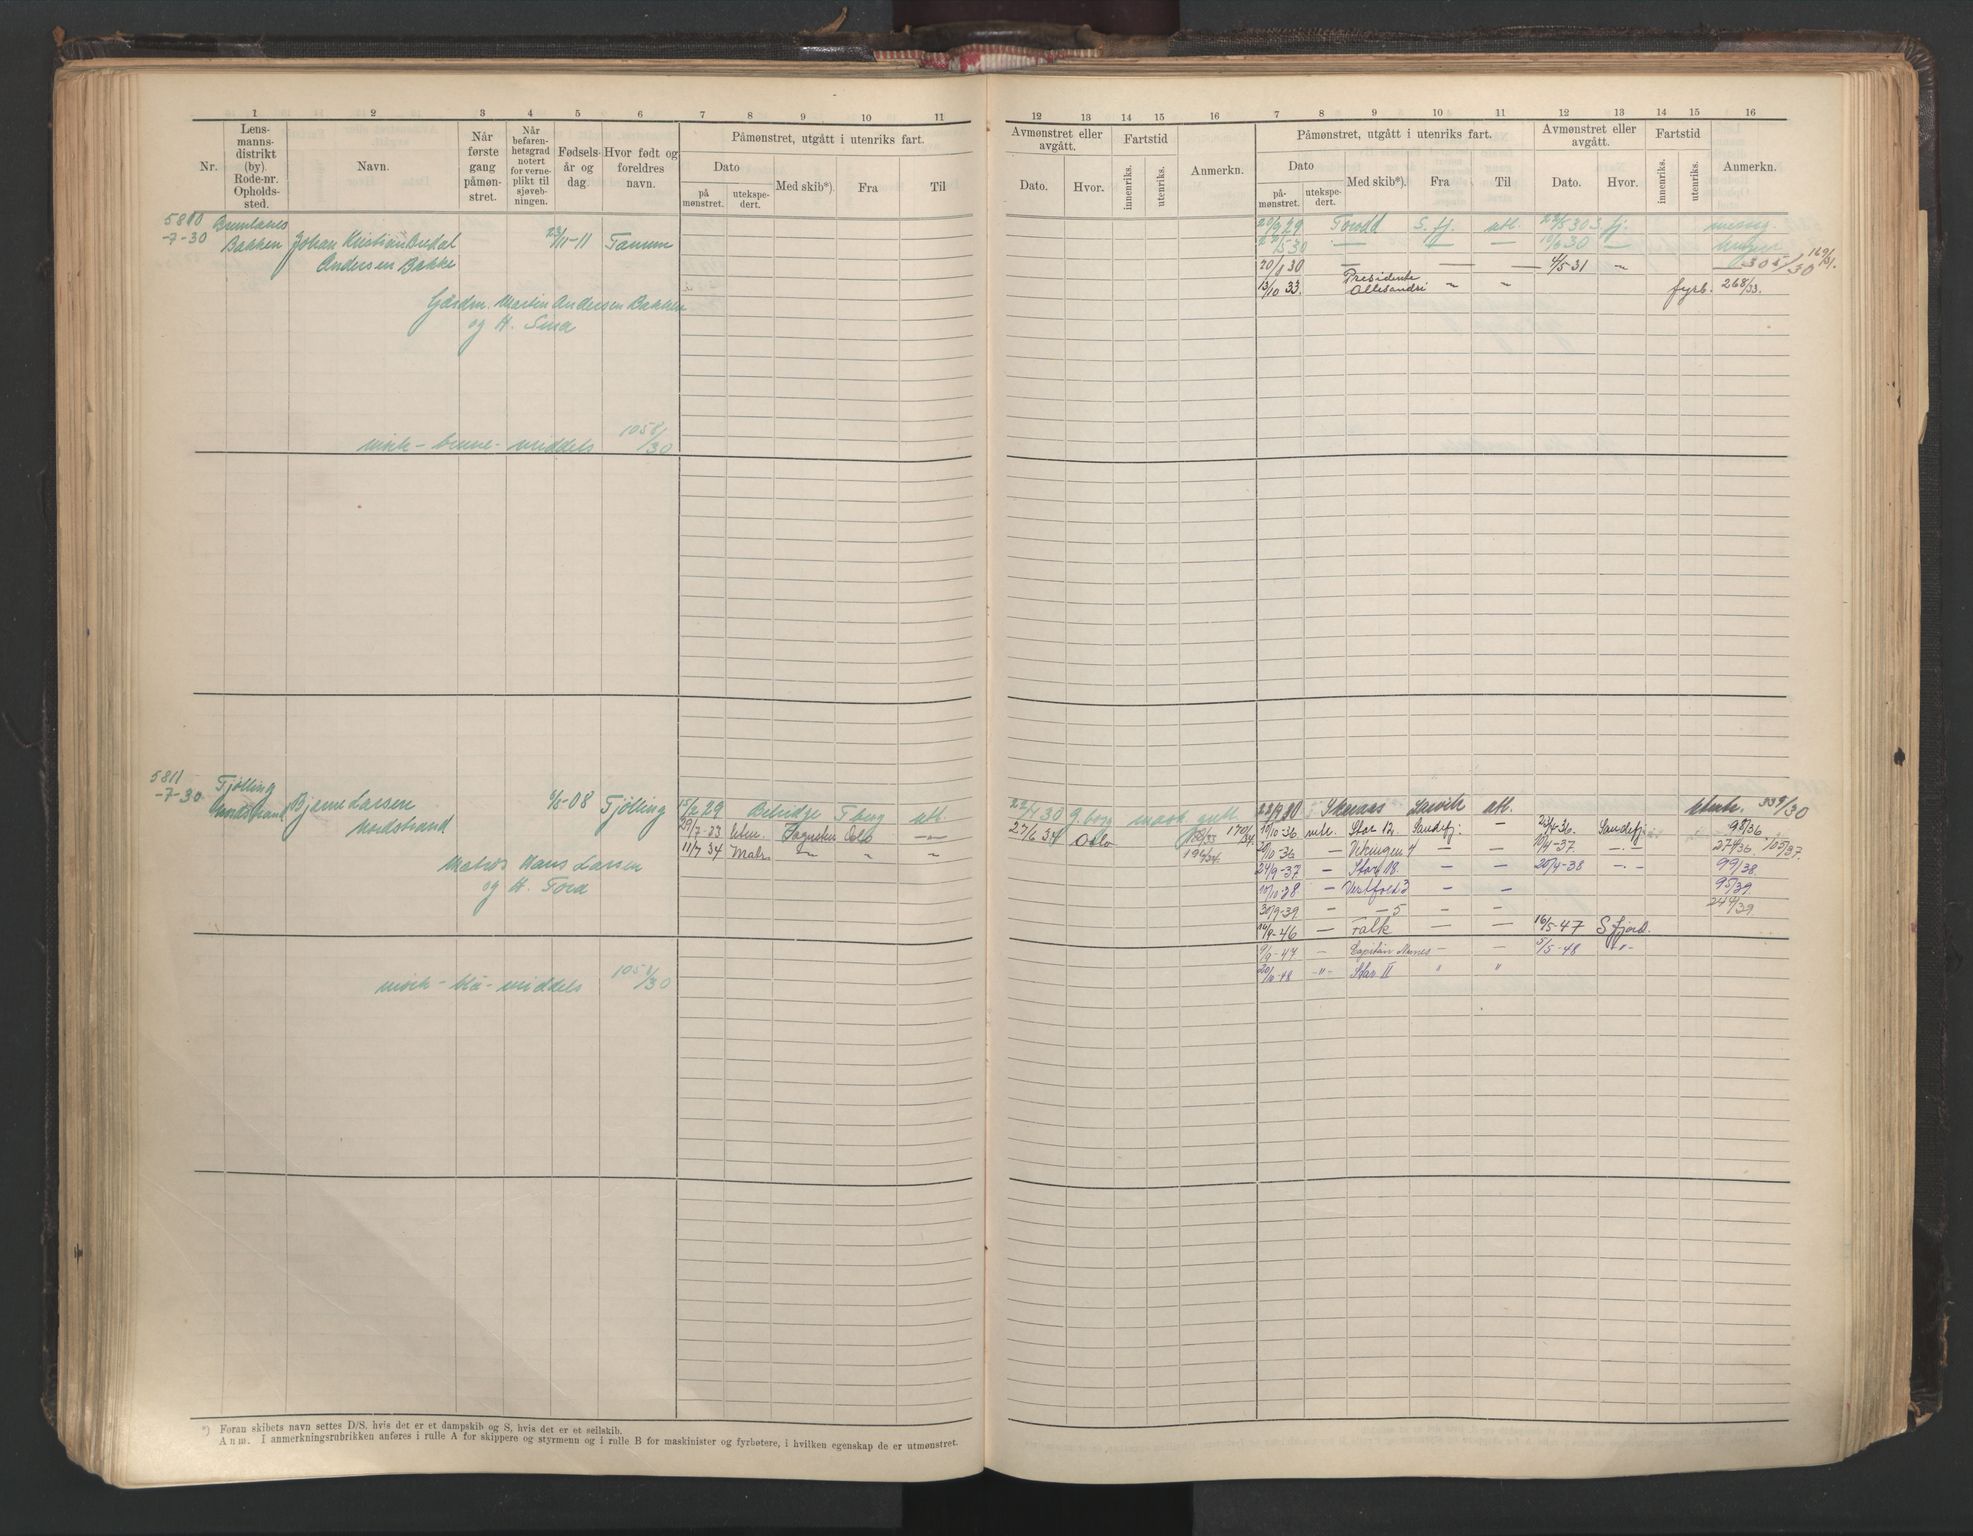 1 2 3 4 5 6 7 8 9 10 11
Nr.
Lens-
manns-
distrikt
(by)
Rode-nr.
Opholds-
sted.
Navn.
Når
første
gang
påmøn-
stret.
Når
befaren-
hetsgrad
notert
for verne-
plikt til
sjøveb-
ningen.
Fødsels-
år og
dag.
Hvor født og
foreldres
navn.
Påmønstret, utgått i utenriks fart.
Dato
på
mønstret.
utekspe-
dert.
Med skib*).
Fra
Til
5810 Brunlanes
-7-30 Bakken Johan Kristian Bredal 23/11-11 Tanum
Andersen Bakke
Gårdm. Martin Andersen Bakken
og H. Sina
mørk - brune - middels 1058/30
5811 Fjølling
-7-30 Nordstrand Bjarne Larsen 6/5-08 Tjølling 15/2 29 Belridge Tberg utl.
Nordstrand 29/7-33 Oslo
11/7 34 Matr. " " "
Matros Hans Larsen
og H. Tora
mørk - blå - middels 1051/30
*) Foran skibets navn settes D/S, hvis det er et dampskib og S, hvis det er et seilskib.
Anm. I anmerkningsrubrikken anføres i rulle A for skippere og styrmenn og i rulle B for maskinister og fyrbøtere, i hvilken egenskap de er utmønstret.
12 13 14 15 16 7 8 9 10 11 12 13 14 15 16
Avmønstret eller
avgått.
Dato.
Hvor.
Fartstid
innenriks.
utenriks.
Anmerkn.
Påmønstret, utgått i utenriks fart.
Dato
på-
mønstret.
utekspe-
dert.
Med skib*).
Fra
Til
Avmønstret eller
avgått.
Dato.
Hvor.
Fartstid
innenriks.
utenriks.
Anmerkn.
20/9 29 Tordd S. fj. utl. 22/5 30 S. fj. messg.
22/5 30 — — — 10/6 30 —
20/8 30 — — — 4/5-31 " 305/30 169/31.
13/10 33. Presidente
Allesandri " " fyrb. 268/33.
22/4 30 G.borg mask. gutt. 22/9 30 Skaraas Larvik utl. 339/30
27/6 34 Oslo 150/33 170/34. 10/10-36 Star 12. Sandefj. — 23/4-36. Sandefj. 98/36.
194/34. 20/10-36 — Vikingen 4 — — 10/4-37. -.- 274/36. 105/37.
24/9-37 — Star 18. — — 20/4-38 -.- 99/38.
10/10-38 — Vestfold 3 — — 95/39.
30/9-39. — — 5 — — 244/39.
14/9-46 — Falk — — 16/5-47 S fjord.
9/9-47 — Capitán Nunes — — 5/5-48 -"-
20/10-48 -"- Star II " "